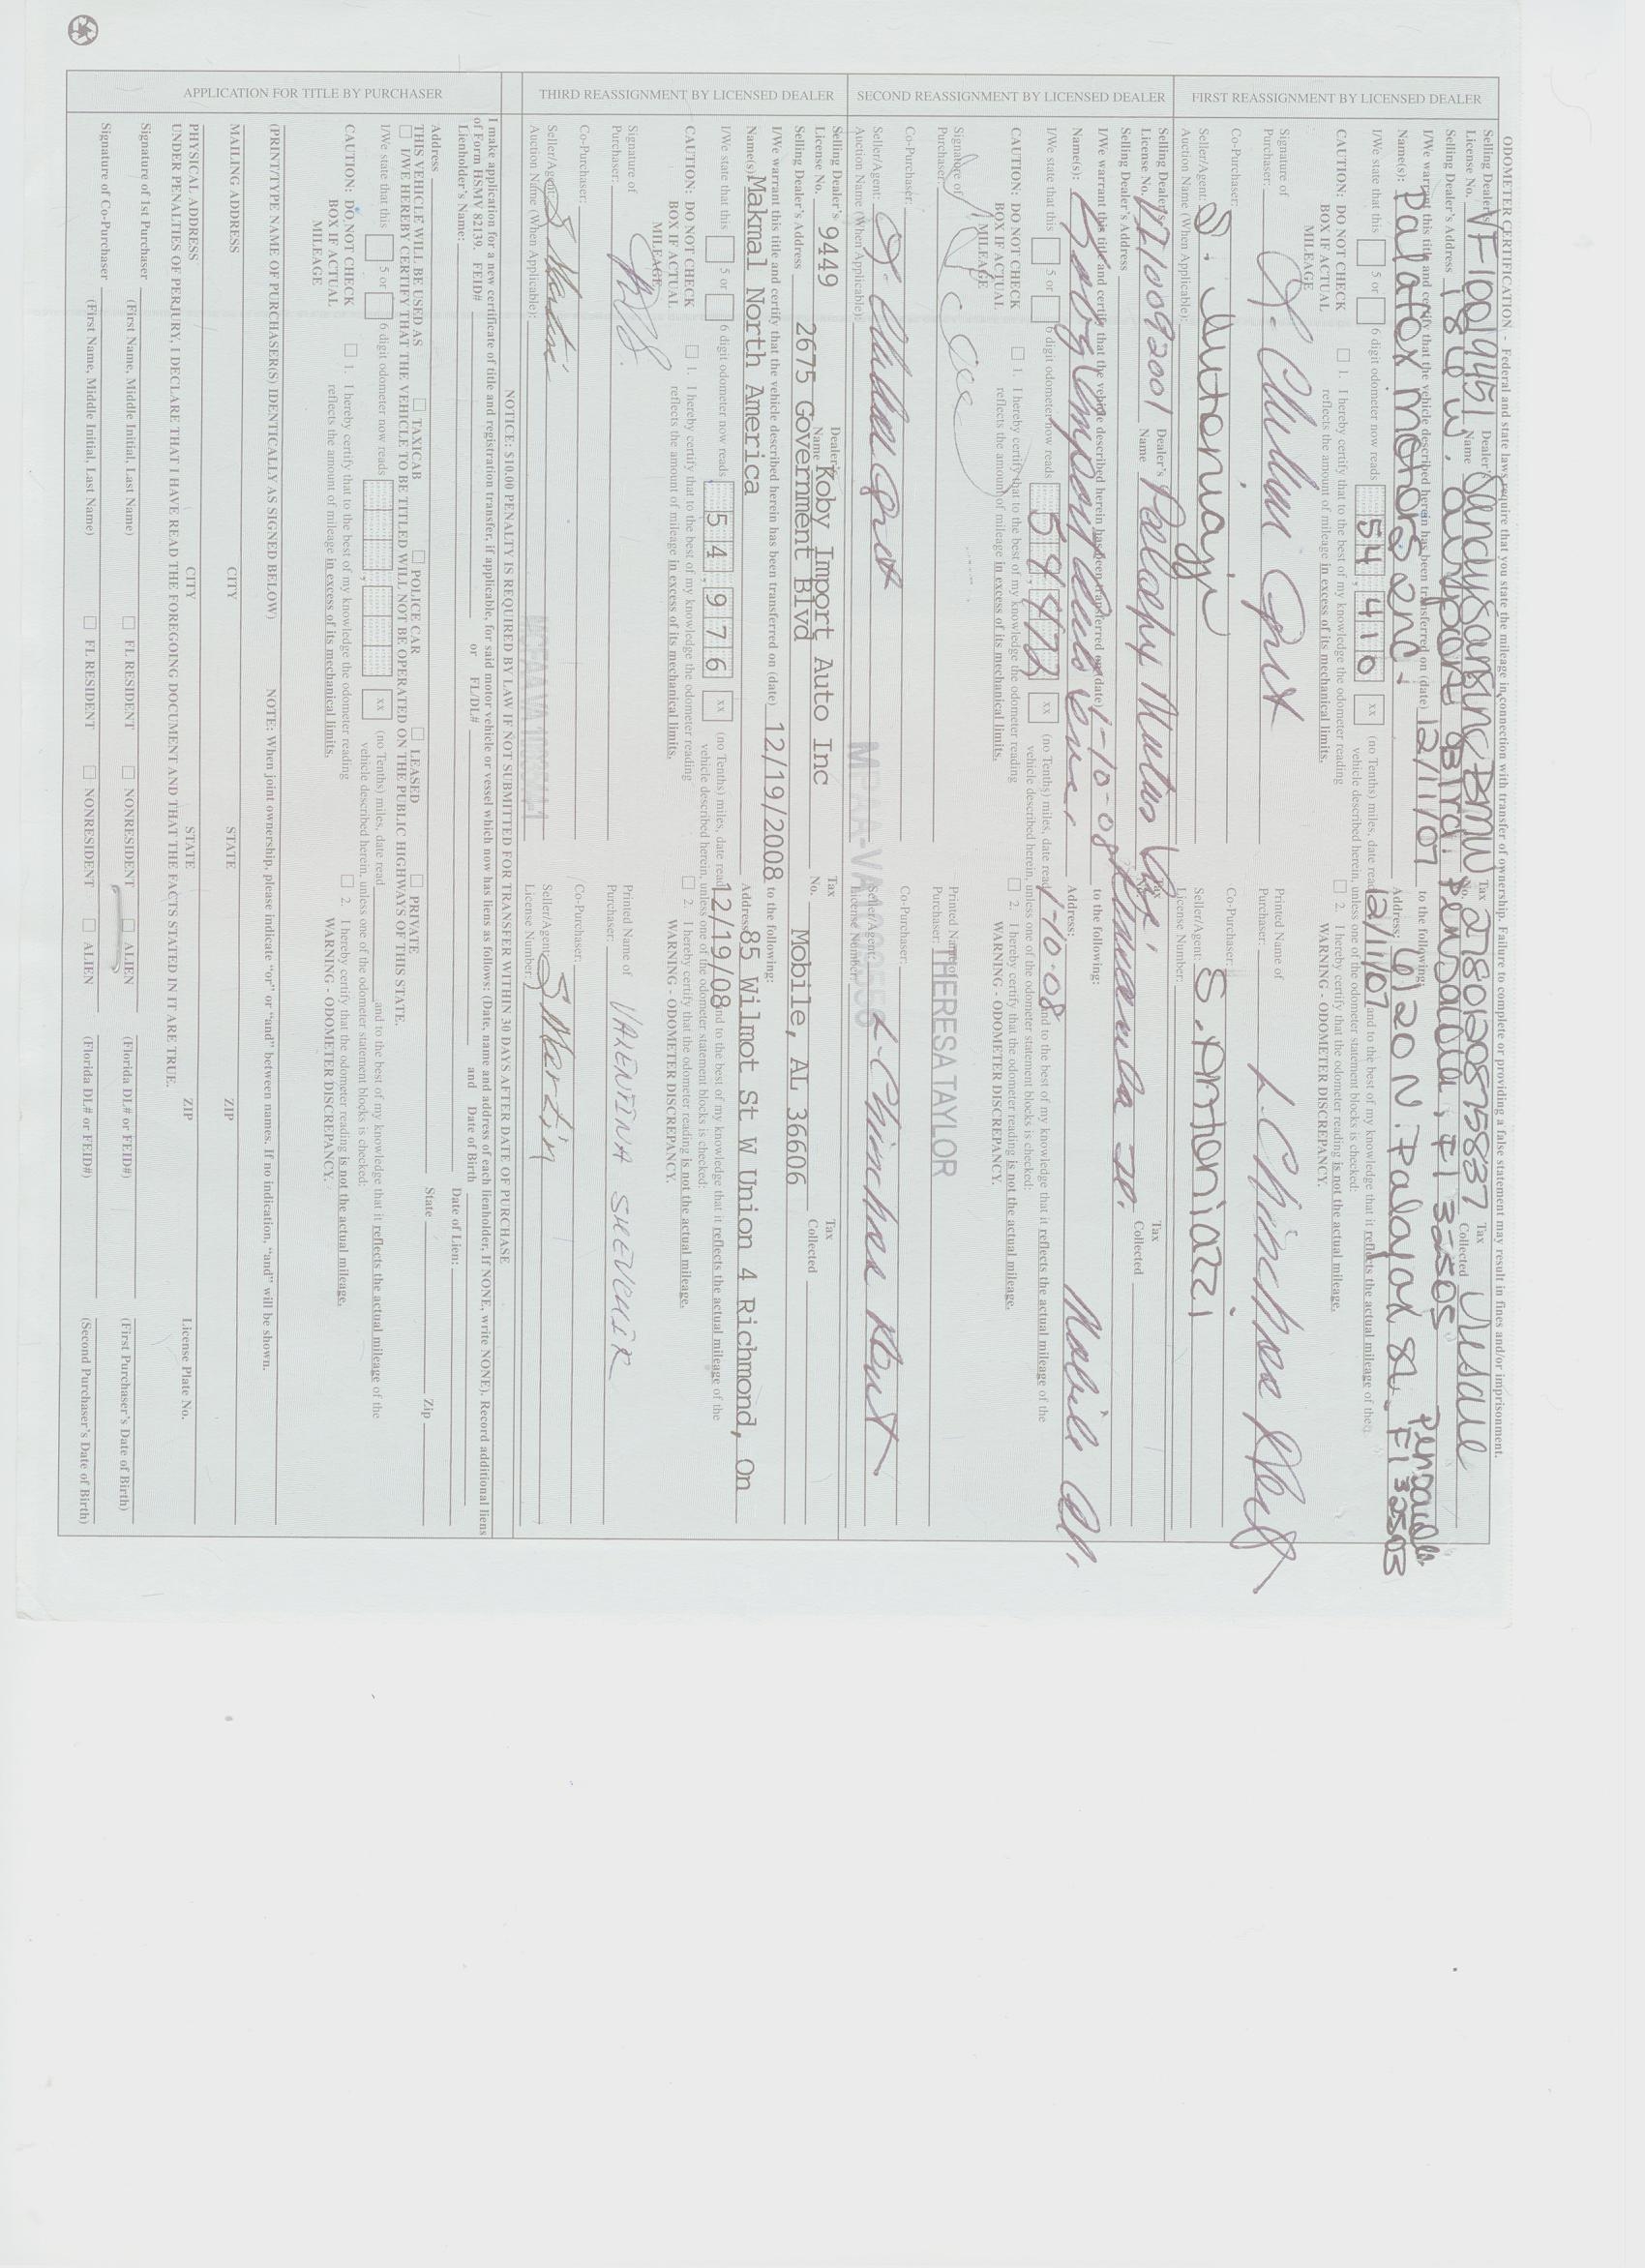 ODOMETER CERTIFICATION - Federal and state laws require that you state the mileage in connection with transfer of ownership. Failure to complete or providing a false statement may result in fines and/or imprisonment.
FIRST REASSIGNMENT BY LICENSED DEALER
Selling Dealer's License No. Dealer's Name Sandy Sansing BMW Tax No. Tax Collected
Selling Dealer's Address 186 W. Airport Blvd. Pensacola, Fl 32505
I/We warrant this title and certify that the vehicle described herein has been transferred on (date) 12/11/07 to the following:
Name(s): Palafox Motors Inc. Address: 6120 N. Palafox St. Pensacola Fl 32503
I/We state that this 5 or 6 digit odometer now reads 54,410 xx (no Tenths) miles, date read 12/11/07 and to the best of my knowledge that it reflects the actual mileage of the
vehicle described herein, unless one of the odometer statement blocks is checked:
CAUTION: DO NOT CHECK BOX IF ACTUAL MILEAGE
1. I hereby certify that to the best of my knowledge the odometer reading reflects the amount of mileage in excess of its mechanical limits.
2. I hereby certify that the odometer reading is not the actual mileage.
WARNING - ODOMETER DISCREPANCY.
Signature of Purchaser: Printed Name of Purchaser:
Co-Purchaser: Co-Purchaser:
Seller/Agent: Seller/Agent: S. Antoniazzi
Auction Name (When Applicable): License Number:
SECOND REASSIGNMENT BY LICENSED DEALER
Selling Dealer's License No. Dealer's Name Tax No. Tax Collected
Selling Dealer's Address
I/We warrant this title and certify that the vehicle described herein has been transferred on (date) 1-10-08 to the following:
Name(s): Address: Mobile Al.
I/We state that this 5 or 6 digit odometer now reads xx (no Tenths) miles, date read 1-10-08 and to the best of my knowledge that it reflects the actual mileage of the
vehicle described herein, unless one of the odometer statement blocks is checked:
CAUTION: DO NOT CHECK BOX IF ACTUAL MILEAGE
1. I hereby certify that to the best of my knowledge the odometer reading reflects the amount of mileage in excess of its mechanical limits.
2. I hereby certify that the odometer reading is not the actual mileage.
WARNING - ODOMETER DISCREPANCY.
Signature of Purchaser: Printed Name of Purchaser: THERESA TAYLOR
Co-Purchaser: Co-Purchaser:
Seller/Agent: Seller/Agent:
Auction Name (When Applicable): License Number:
THIRD REASSIGNMENT BY LICENSED DEALER
Selling Dealer's License No. 9449 Dealer's Name Koby Import Auto Inc Tax No. Tax Collected
Selling Dealer's Address 2675 Government Blvd Mobile, AL 36606
I/We warrant this title and certify that the vehicle described herein has been transferred on (date) 12/19/2008 to the following:
Name(s) Makmal North America Address 85 Wilmot St W Union 4 Richmond, On
I/We state that this 5 or 6 digit odometer now reads 54,976 xx (no Tenths) miles, date read 12/19/08 and to the best of my knowledge that it reflects the actual mileage of the
vehicle described herein, unless one of the odometer statement blocks is checked:
CAUTION: DO NOT CHECK BOX IF ACTUAL MILEAGE
1. I hereby certify that to the best of my knowledge the odometer reading reflects the amount of mileage in excess of its mechanical limits.
2. I hereby certify that the odometer reading is not the actual mileage.
WARNING - ODOMETER DISCREPANCY.
Signature of Purchaser: Printed Name of Purchaser:
Co-Purchaser: Co-Purchaser:
Seller/Agent: S Martin Seller/Agent: S Martin
Auction Name (When Applicable): License Number:
NOTICE: $10.00 PENALTY IS REQUIRED BY LAW IF NOT SUBMITTED FOR TRANSFER WITHIN 30 DAYS AFTER DATE OF PURCHASE
APPLICATION FOR TITLE BY PURCHASER
I make application for a new certificate of title and registration transfer, if applicable, for said motor vehicle or vessel which now has liens as follows: (Date, name and address of each lienholder, If NONE, write NONE). Record additional liens
of Form HSMV 82139. FEID# or FL/DL# and Date of Birth
Lienholder's Name: Date of Lien:
Address State Zip
THIS VEHICLE WILL BE USED AS TAXICAB POLICE CAR LEASED PRIVATE
I/WE HEREBY CERTIFY THAT THE VEHICLE TO BE TITLED WILL NOT BE OPERATED ON THE PUBLIC HIGHWAYS OF THIS STATE.
I/We state that this 5 or 6 digit odometer now reads xx (no Tenths) miles, date read and to the best of my knowledge that it reflects the actual mileage of the
vehicle described herein, unless one of the odometer statement blocks is checked:
CAUTION: DO NOT CHECK BOX IF ACTUAL MILEAGE
1. I hereby certify that to the best of my knowledge the odometer reading reflects the amount of mileage in excess of its mechanical limits.
2. I hereby certify that the odometer reading is not the actual mileage.
WARNING - ODOMETER DISCREPANCY.
(PRINT/TYPE NAME OF PURCHASER(S) IDENTICALLY AS SIGNED BELOW) NOTE: When joint ownership, please indicate "or" or "and" between names. If no indication, "and" will be shown.
MAILING ADDRESS CITY STATE ZIP
PHYSICAL ADDRESS CITY STATE ZIP License Plate No.
UNDER PENALTIES OF PERJURY, I DECLARE THAT I HAVE READ THE FOREGOING DOCUMENT AND THAT THE FACTS STATED IN IT ARE TRUE.
Signature of 1st Purchaser (First Name, Middle Initial, Last Name) FL RESIDENT NONRESIDENT ALIEN (Florida DL# or FEID#) (First Purchaser's Date of Birth)
Signature of Co-Purchaser (First Name, Middle Initial, Last Name) FL RESIDENT NONRESIDENT ALIEN (Florida DL# or FEID#) (Second Purchaser's Date of Birth)